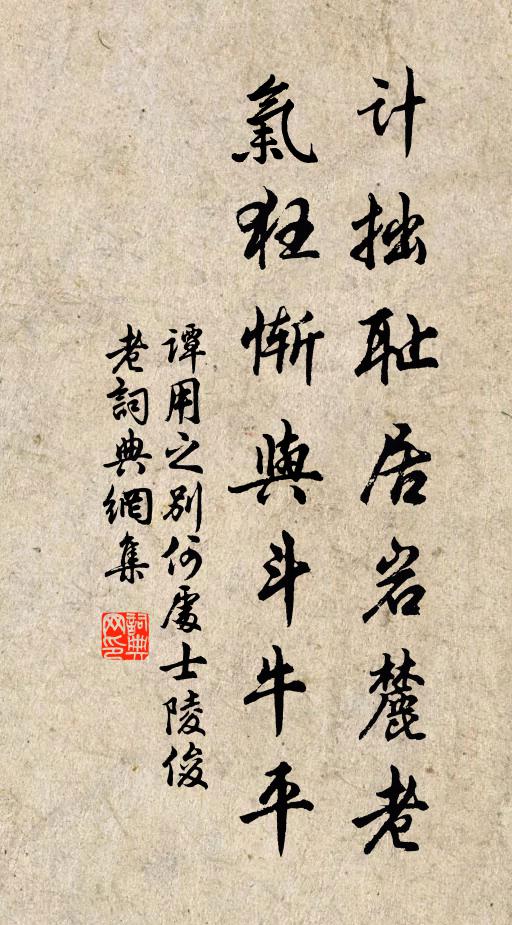 计拙耻居岩麓老
氣狂惭與斗牛平
谭用之别何處士陵俊
老詞典網集
詞典
网印